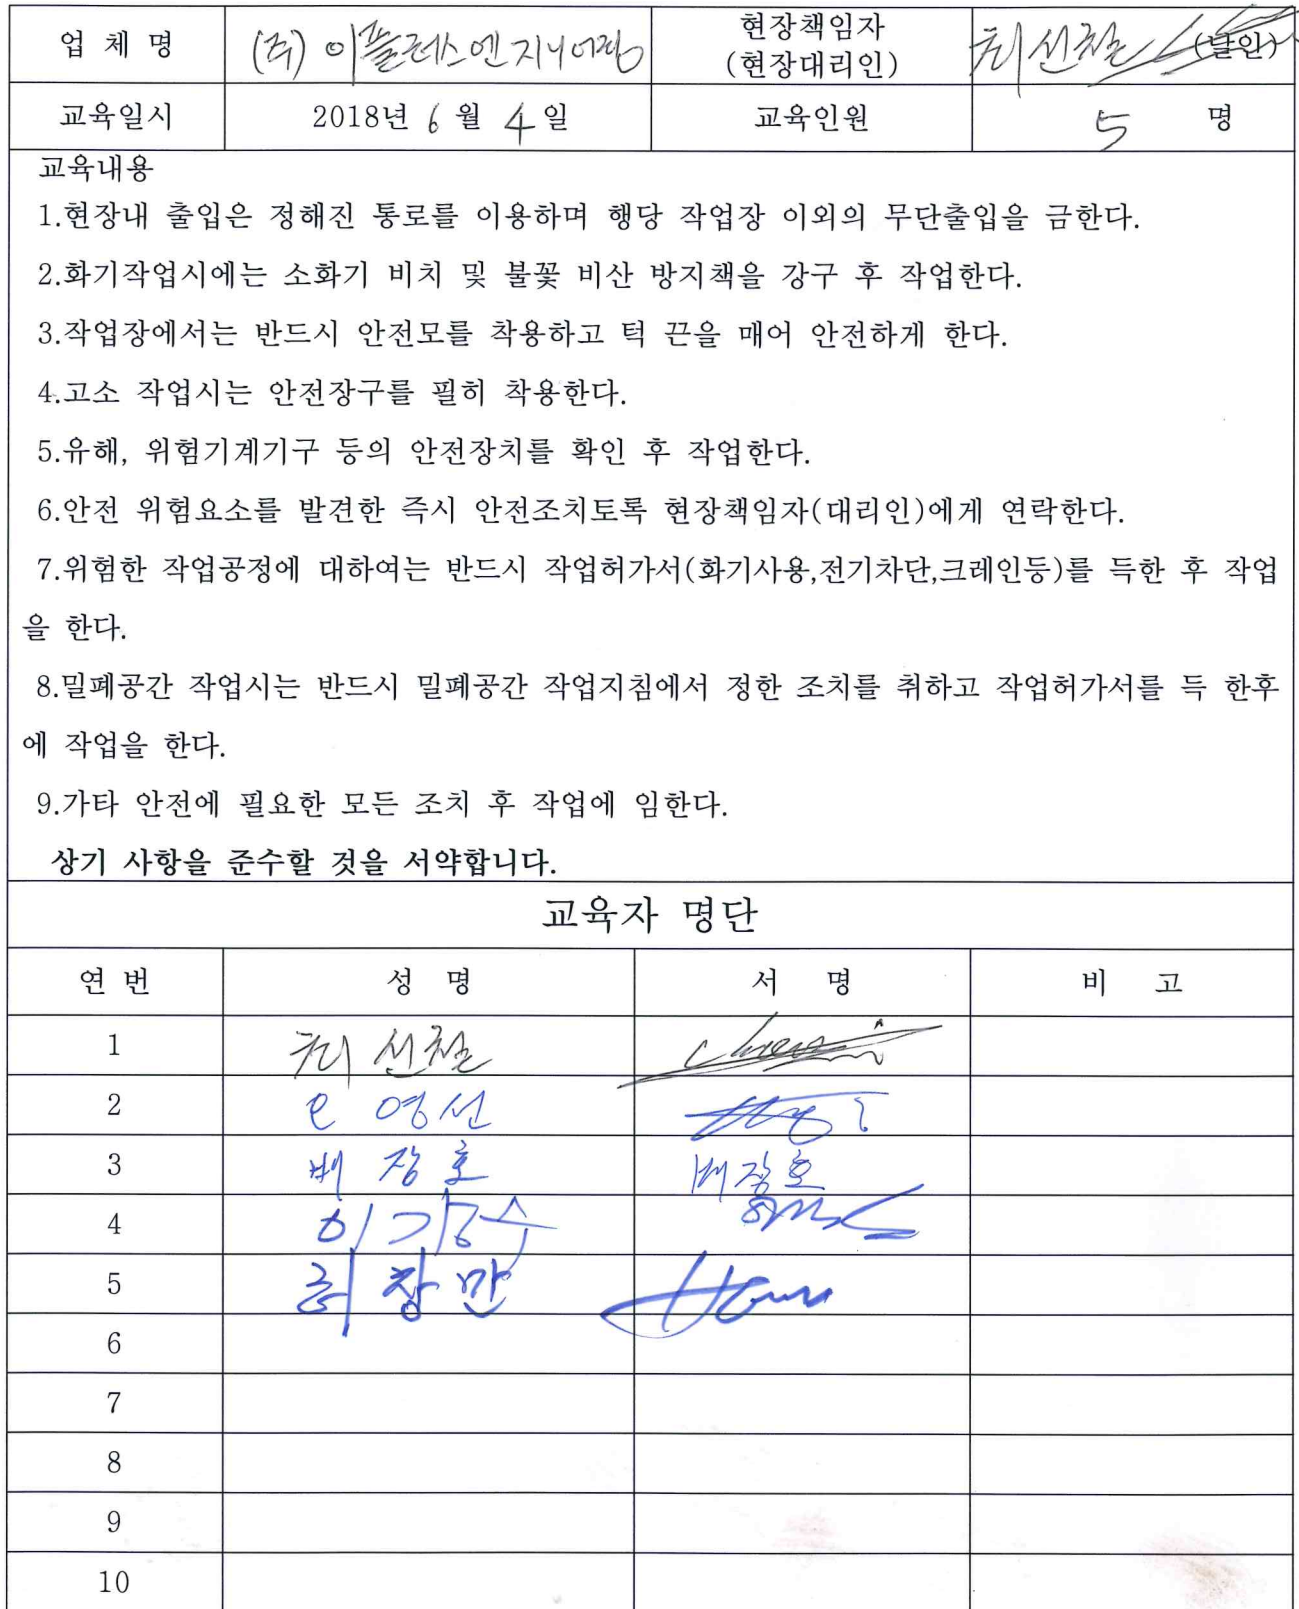 업 체 명 (주) 이플러스엔지니어링 현장책임자 (현장대리인) 최신철 (날인)
교육일시 2018년 6 월 4 일 교육인원 5 명
교육내용
1.현장내 출입은 정해진 통로를 이용하며 행당 작업장 이외의 무단출입을 금한다.
2.화기작업시에는 소화기 비치 및 불꽃 비산 방지책을 강구 후 작업한다.
3.작업장에서는 반드시 안전모를 착용하고 턱 끈을 매어 안전하게 한다.
4.고소 작업시는 안전장구를 필히 착용한다.
5.유해, 위험기계기구 등의 안전장치를 확인 후 작업한다.
6.안전 위험요소를 발견한 즉시 안전조치토록 현장책임자(대리인)에게 연락한다.
7.위험한 작업공정에 대하여는 반드시 작업허가서(화기사용,전기차단,크레인등)를 득한 후 작업
을 한다.
8.밀폐공간 작업시는 반드시 밀폐공간 작업지침에서 정한 조치를 취하고 작업허가서를 득 한후
에 작업을 한다.
9.가타 안전에 필요한 모든 조치 후 작업에 임한다.
상기 사항을 준수할 것을 서약합니다.
교육자 명단
연 번 성 명 서 명 비 고
1 최신철
2 영선
3 배 장호 배장호
4
5 허창만
6
7
8
9
10